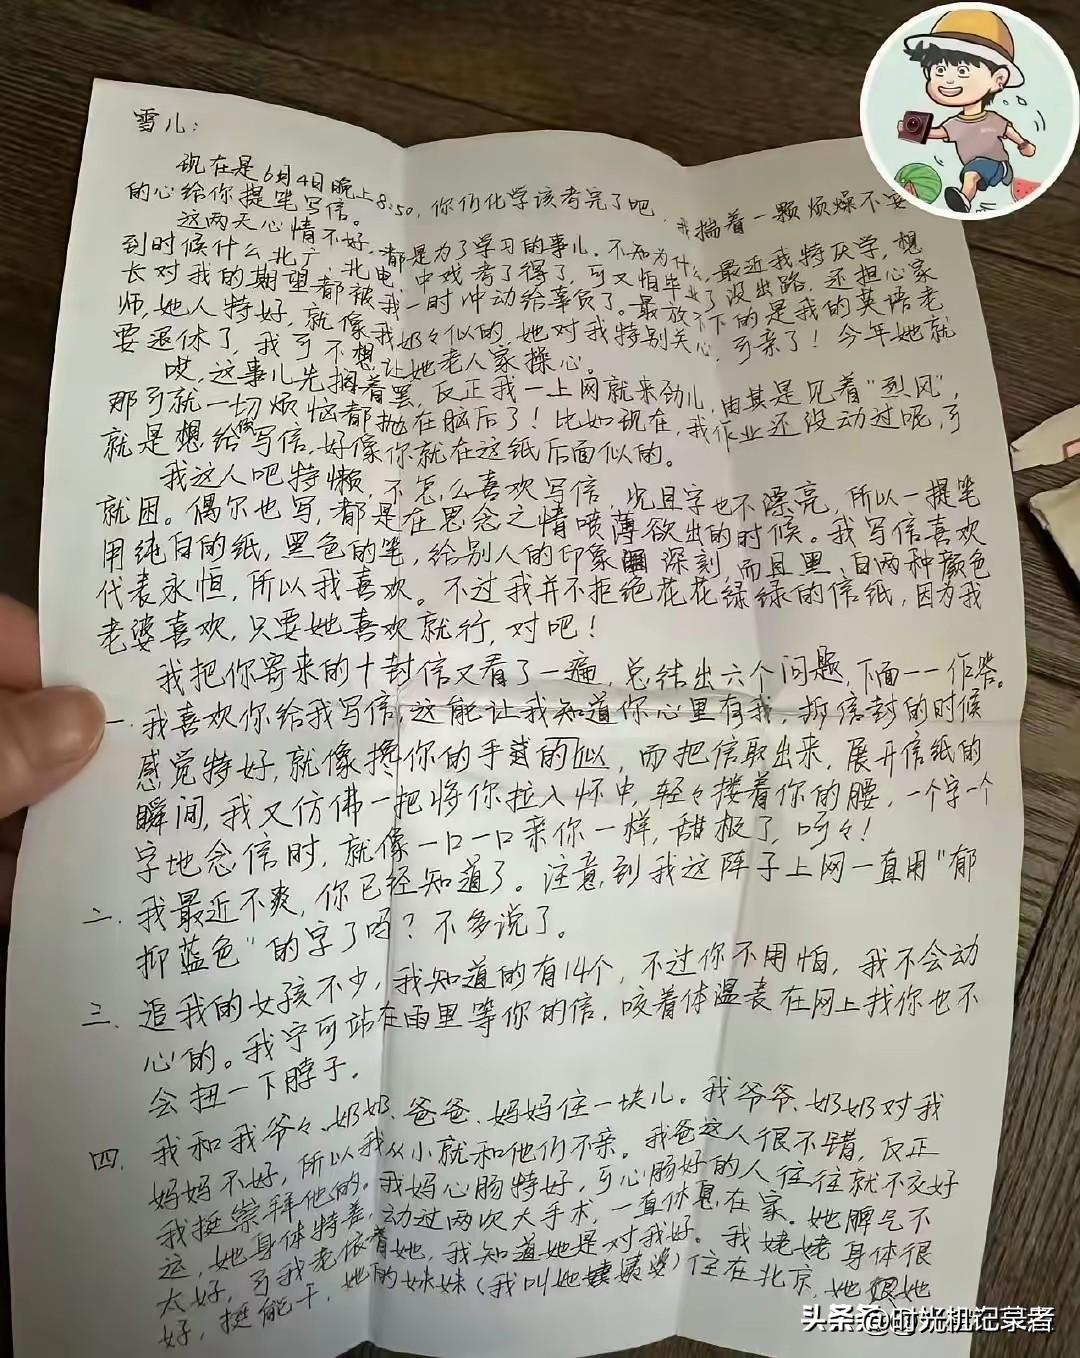 雪儿：
现在是6月4日晚上8:50，你们化学该考完了吧，我揣着一颗烦燥不安
的心给你提笔写信。
这两天心情不好，都是为了学习的事儿。不知为什么，最近我特厌学，想
到时候什么北广、北电、中戏考了得了，可又怕毕业了没出路，还担心家
长对我的期望都被我一时冲动给辜负了。最放不下的是我的英语老
师，她人特好，就像我奶々似的，她对我特别关心，可亲了！今年她就
要退休了，我可不想让她老人家操心。
哎，这事儿先搁着罢，反正我一上网就来劲儿，由其是见着“烈风”，
那可就一切烦恼都抛在脑后了！比如现在，我作业还没动过呢，可
就是想给你写信，好像你就在这纸后面似的。
我这人吧特懒，不怎么喜欢写信，况且字也不漂亮，所以一提笔
就困。偶尔也写，都是在思念之情喷薄欲出的时候。我写信喜欢
用纯白的纸，黑色的笔，给别人的印象深刻，而且黑、白两种颜色
代表永恒，所以我喜欢。不过我并不拒绝花花绿绿的信纸，因为我
老婆喜欢，只要她喜欢就行，对吧！
我把你寄来的十封信又看了一遍，总结出六个问题，下面一一作答。
一、我喜欢你给我写信，这能让我知道你心里有我，拆信封的时候
感觉特好，就像搀你的手的似，而把信取出来，展开信纸的
瞬间，我又仿佛一把将你拉入怀中，轻々搂着你的腰，一个字一个
字地念信时，就像一口一口亲你一样，甜极了，呵々！
二、我最近不爽，你已经知道了。注意到我这阵子上网一直用“郁
抑蓝色”的字了吗？不多说了。
三、追我的女孩不少，我知道的有14个，不过你不用怕，我不会动
心的。我宁可站在雨里等你的信，咬着体温表在网上找你也不
会扭一下脖子。
四、我和我爷々、奶奶、爸爸、妈妈住一块儿。我爷爷、奶奶对我
妈妈不好，所以我从小就和他们不亲。我爸这人很不错，反正
我挺崇拜他的。我妈心肠特好，可心肠好的人往往就不交好
运，她身体特差，动过两次大手术，一直休息在家。她脾气不
太好，可我老依着她，我知道她是对我好。我姥姥身体很
好，挺能干，她的妹妹（我叫她姨婆）住在北京，她跟她
头条 @时光机记录者